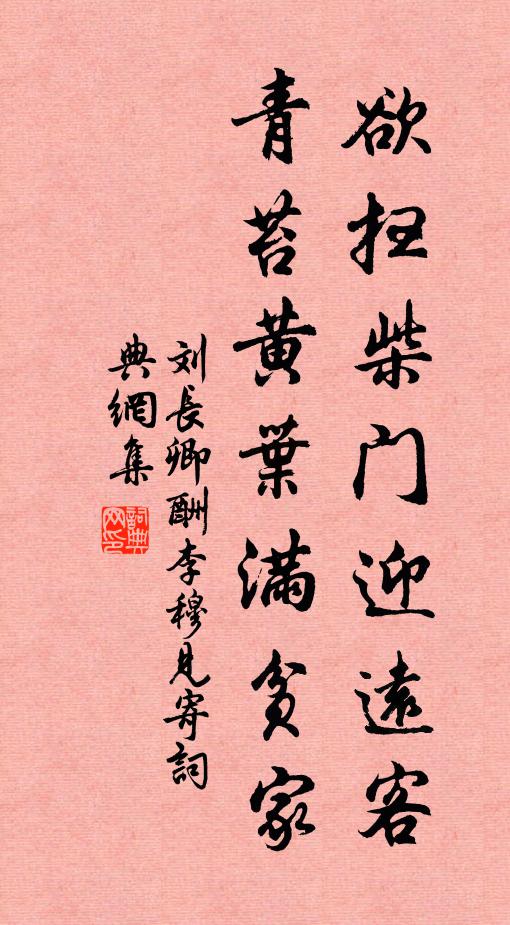 欲扫柴门迎遠客
青苔黄葉满贫家
刘長卿酬李穆見寄詞
典網集
詞典网印